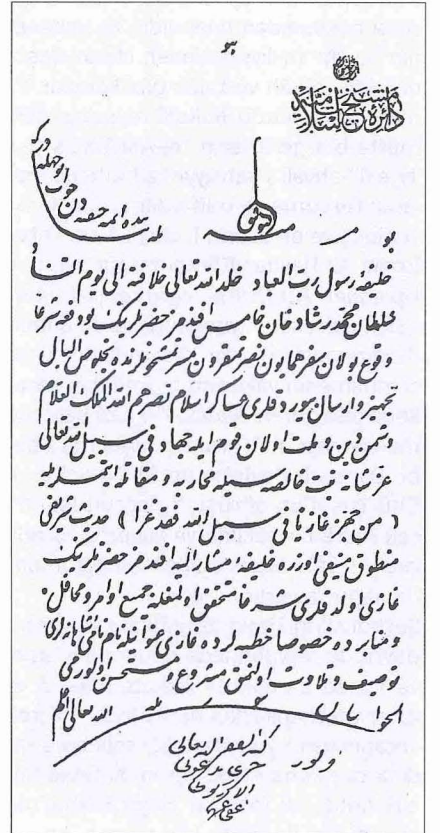 هو
دائرۀ مشيخت اسلاميه
بو مسئله ده ائمۀ حنفيه دن جواب نه وجهله در كه
خليفۀ رسول رب العباد خلد الله تعالى خلافته الى يوم التناد
سلطان محمد رشاد خان خامس افندمز حضرتلرينك بو دفعه شرعا
وقوع بولان سفر همايون نصرتمقرون وبخلوص البال
تجهيز وارسال بيوردقلرى عساكر اسلام نصرهم الله الملك العلام
دشمن دين و دولت اولان قوم ايله جهاد فى سبيل الله تعالى
محاربه و مقاتله ايتمكله
(من جهز غازيا فى سبيل الله فقد غزا) حديث شريفى
منطوق منيفى اوزره خليفۀ مشار اليه افندمز حضرتلرينك
غازى اولدقلرى شرعا متحقق اولمغله جميع اوامر و محافل
و منابرده خصوصا خطبه لرده غازى عنوانيله نام نامئ شاهانه لرى
توصيف و تلاوت اولنمق مشروع و مستحسن اولورمى
الجواب الله تعالى اعلم
اولور
كتبه الفقير اليه تعالى
خيرى بن عونى
الاركوبى
عفى عنهما